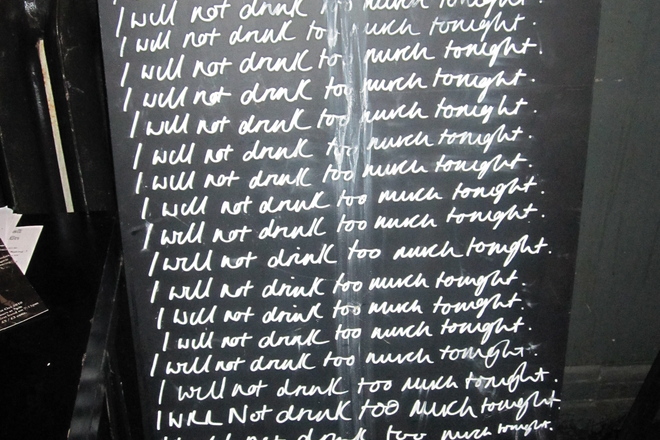 I will not drink too much tonight.
I will not drink too much tonight.
I will not drink too much tonight.
I will not drink too much tonight.
I will not drink too much tonight.
I will not drink too much tonight.
I will not drink too much tonight.
I will not drink too much tonight.
I will not drink too much tonight.
I will not drink too much tonight.
I will not drink too much tonight.
I will not drink too much tonight.
I will not drink too much tonight.
I will not drink too much tonight.
I will not drink too much tonight.
I WILL Not drink TOO much tonight.
I will not drink too much tonight.